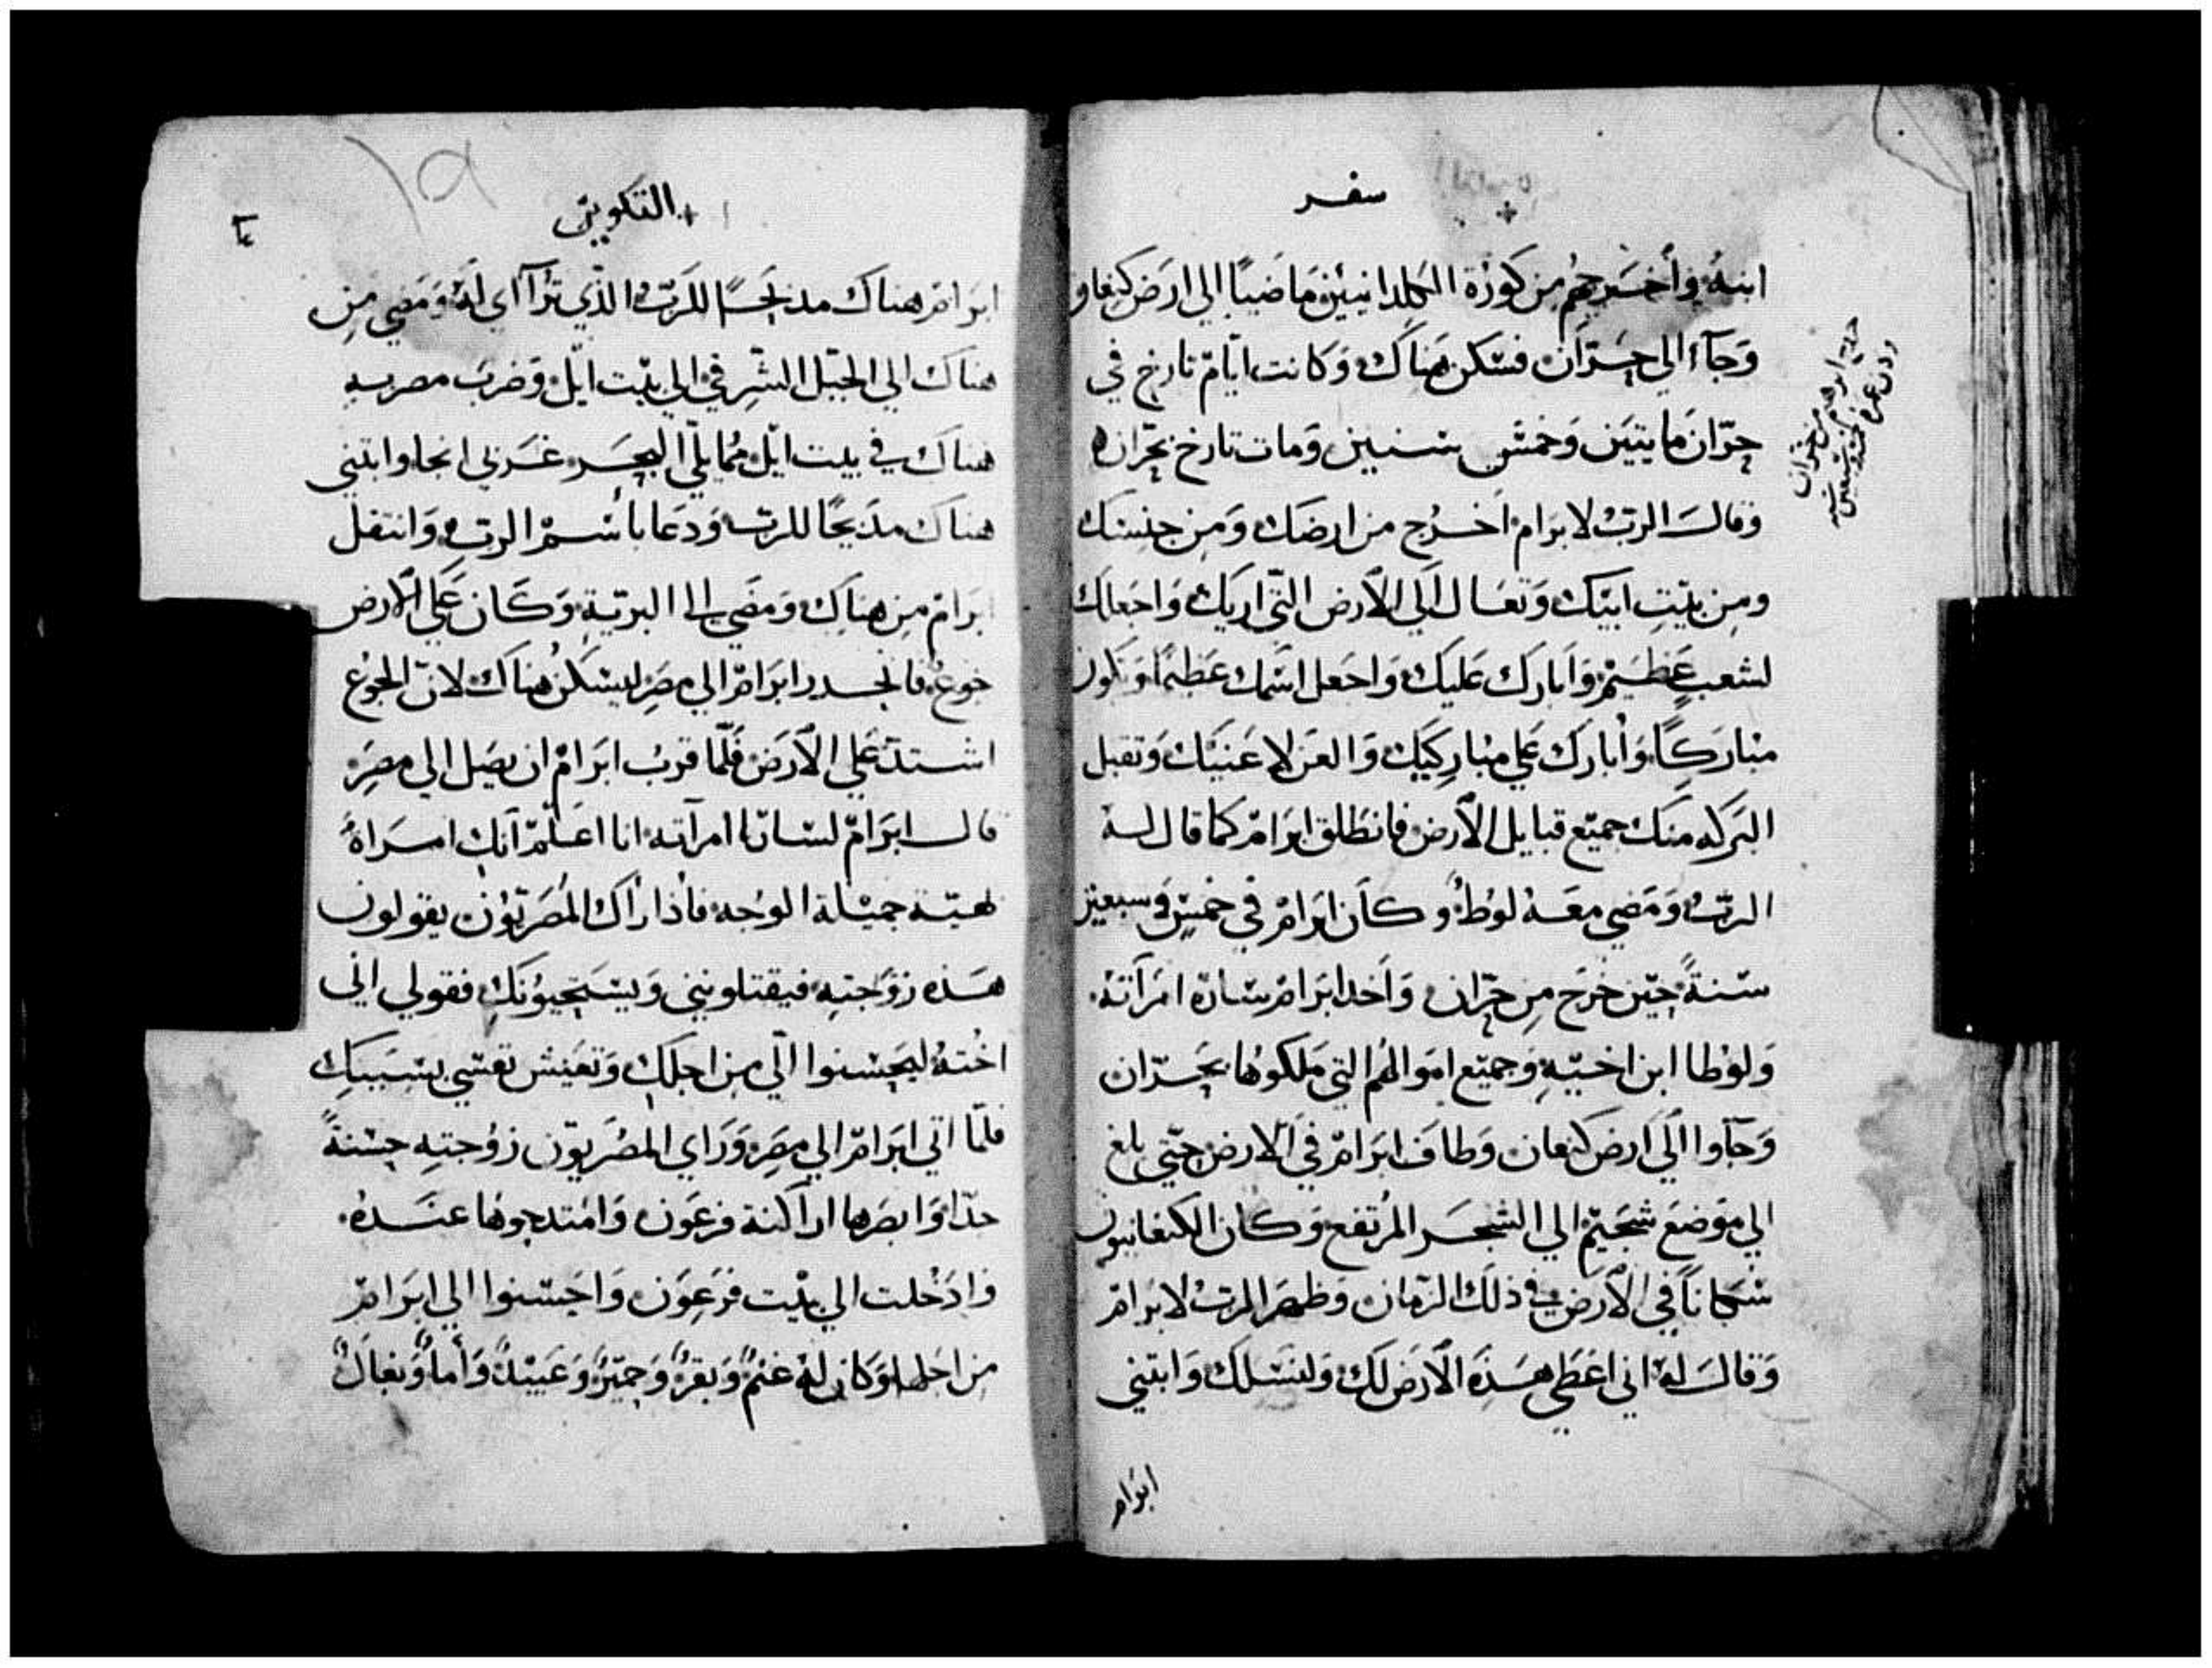 سفر
ابنه وأخرجهم من كورة الكلدانيين ماضيًا الي ارض كنعان
وَجآء الي حرّان فسكن هناك وَكانت ايّام تارخ في
حرّان مايتين وَخمس سنين وَمات تارخ بحرّان
وَقال الربُ لابرَام اَخرُج من ارضك وَمِن جنسك
ومِن بيتِ ابيك وَتعَال الَي الاَرض التّي اريك وَاجعلك
لشعبٍ عَظيم وَاَبارك عَليك وَاجعل اسمك عَظيمًا وَتكون
مبارَكًا وَأبارك عَلي مباركيك وَالعن لاعَنيك وَتقبل
البَركه منك جميع قبايل الاَرض فانطلق ابرَام كما قال له
الربُ وَمَضي معَه لوُطُ وكاَن ابرَام في خمس وَسبعين
سنةً حين خرَج مِن حرّان وَاَخد ابرَام سارة امرَآته
وَلوُطا ابن اخيهِ وَجميع امَوالهُم التي مَلكوُها بحرّان
وَجآوا الَي ارض كنعان وَطاف ابرَام في الاَرض حتي بلغ
الي مَوضعَ شجيم الي الشجر المُرتفع وَكان الكنعانيون
سكاناً في الاَرض في ذلك الزمان وَظهر الربُ لابرَام
وَقال له اني اعَطي هَذه الاَرضَ لك وَلنسلك وَابتني
ابرام
خرج ابراهيم من حران
التكوين
١٩
ابرَام هناك مذبحًا للرَبّ الذّي ترآاي لَهُ وَمَضي مِن
هناك الي الجبل الشرِقي الي بيت ايل وَضربَ مضربه
هناك في بيت ايل ممايلي البحر غَربي انحا وابتني
هناك مذبحًا للرب وَدعَا بأسم الربِ وَانتقل
ابرَام مِن هناك وَمضَي الي البريّة وَكَان عَلي الاَرض
جوعُ فانحدر ابرَام الي مصرَ ليسكنُ هناك لانّ الجوُع
اشتدّ عَلي الاَرض فلمّا قربُ ابرَام ان يصَل الي مصرَ
قال ابرَام لسارا امرآته انا اعَلم آنكِ امرَاةً
بهيّة جميلة الوُجه فاذا رأك المُصَريوُن يقولون
هَذه زوَجته فيقتلونني وَيستحيوُنكِ فقولي اني
اخُته ليحَسنوا الّي مِن اجلكِ وَتعَيش نفسي بسَببكِ
فلمّا اتي ابرَام الي مصَر وَرَاي المصُريوّن زوُجتهِ حسنةً
جدّا وَابصَرها اراكنة فرعَون وَامَتدحوها عندهُ
وَادَخلت الي بيت فرَعوَن وَاحَسنوا الي ابرَام
مِن اجَلها وَكان لهُ غنمُ وَبقرُ وَحميرُ وَعَبيدُ وَأما وَبغالُ